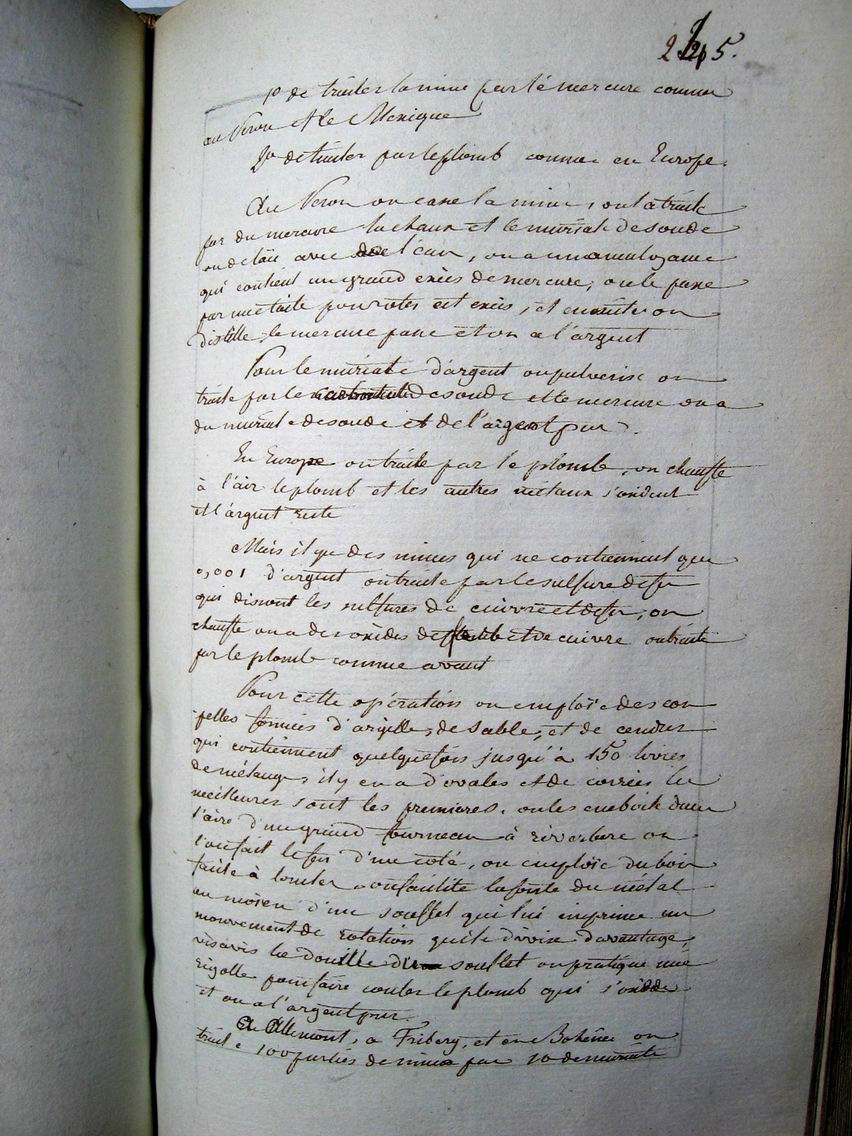 245.
1º de traiter la mine par le mercure comme
au Perou et le Mexique
2º de traiter par le plomb comme en Europe.
Au Perou on casse la mine, on la traite
par du mercure la chaux et le muriate de soude
on delaie avec de l'eau, on a un amalgame
qui contient un grand exces de mercure, on le passe
par une toile pour oter cet exces, et ensuite on
distille, le mercure passe et on a l'argent
Pour le muriate d'argent on pulverise on
traite par le carbonate de soude et le mercure on a
du muriate de soude et de l'argent pur.
En Europe on traite par le plomb, on chauffe
à l'air le plomb et les autres métaux s'oxident
et l'argent reste
Mais il y a des mines qui ne contiennent que
0,001 d'argent on traite par le sulfure de fer
qui dissout les sulfures de cuivre et de fer, on
chauffe on a des oxides de et de cuivre on traite
par le plomb comme avant
Pour cette opération on emploïe des cou
pelles formées d'argille, de sable, et de cendres
qui contiennent quelquefois jusqu'à 150 livres
de mélange, il y en a d'ovales et de carrées les
meilleures sont les premieres. on les emboite dans
l'aire d'un grand fourneau à réverbere on
fait le feu d'un coté, on emploïe du bois
facile à bruler on facilite la fonte du métal
au moïen d'un soufflet qui lui imprime un
mouvement de rotation qui le divise davantage,
visavis la douille du soufflet on pratique une
rigolle pour faire couler le plomb qui s'oxide
et on a l'argent pur.
A Allemont, a Friberg, et en Bohême on
traite 100 parties de mine par 10 de muriate